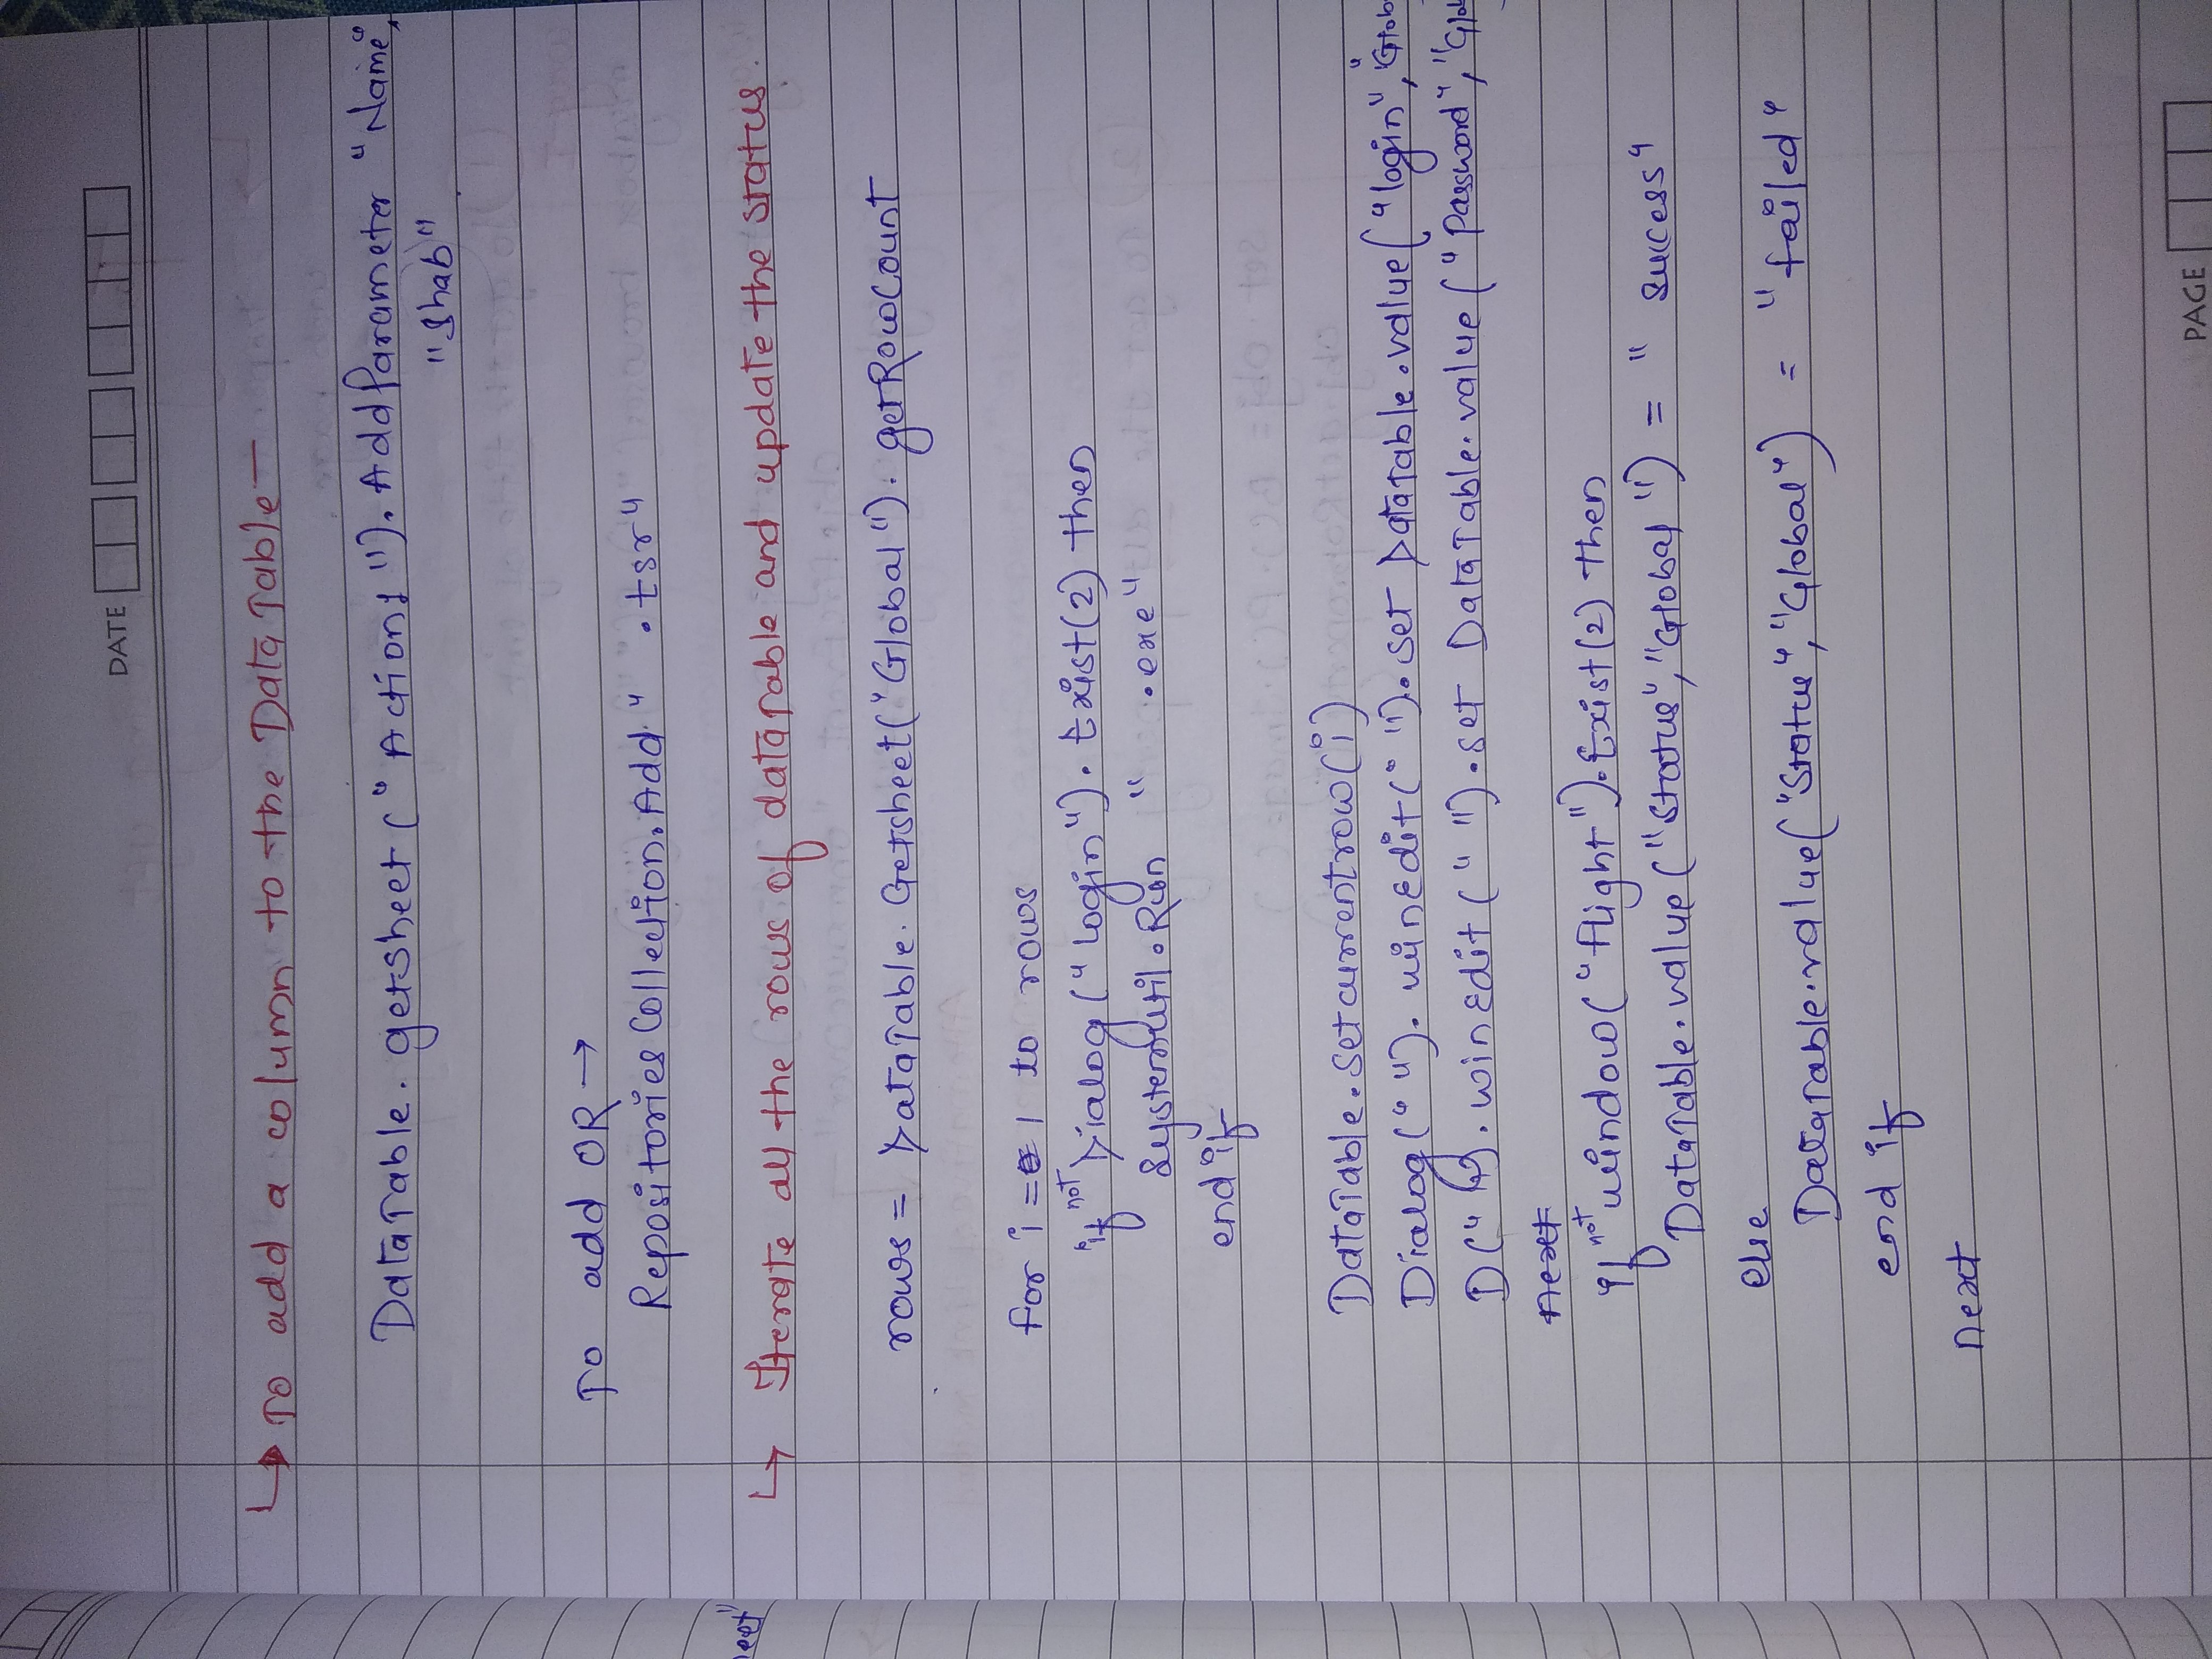 DATE
↳ To add a column to the DataTable —
DataTable. getsheet ("Action1"). AddParameter "Name",
"Shab"
To add OR →
Repositories Collection.Add " .tsr"
↳ Iterate all the rows of datatable and update the status.
rows = DataTable. Getsheet("Global"). getRowCount
for i = 1 to rows
if not Dialog ("login"). Exist(2) then
Systemutil.Run " .exe"
end if
DataTable.setcurrentrow(i)
Dialog(" "). winedit(" ").set Datatable.value("login","Glob
D(" "). winEdit (" ").set DataTable.value("Password","Glo
next
if not window("flight").Exist(2) then
DataTable.value("status","Global") = "success"
else
Datatable.value("status","Global") = "failed"
end if
next
PAGE
eet"